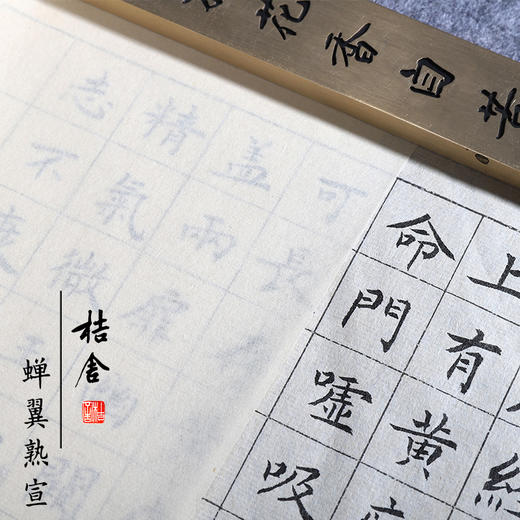 花香自苦
上有黄
命門噓吸
可長
盖兩扉
精氣微
志不衰
桔舍
蝉翼熟宣